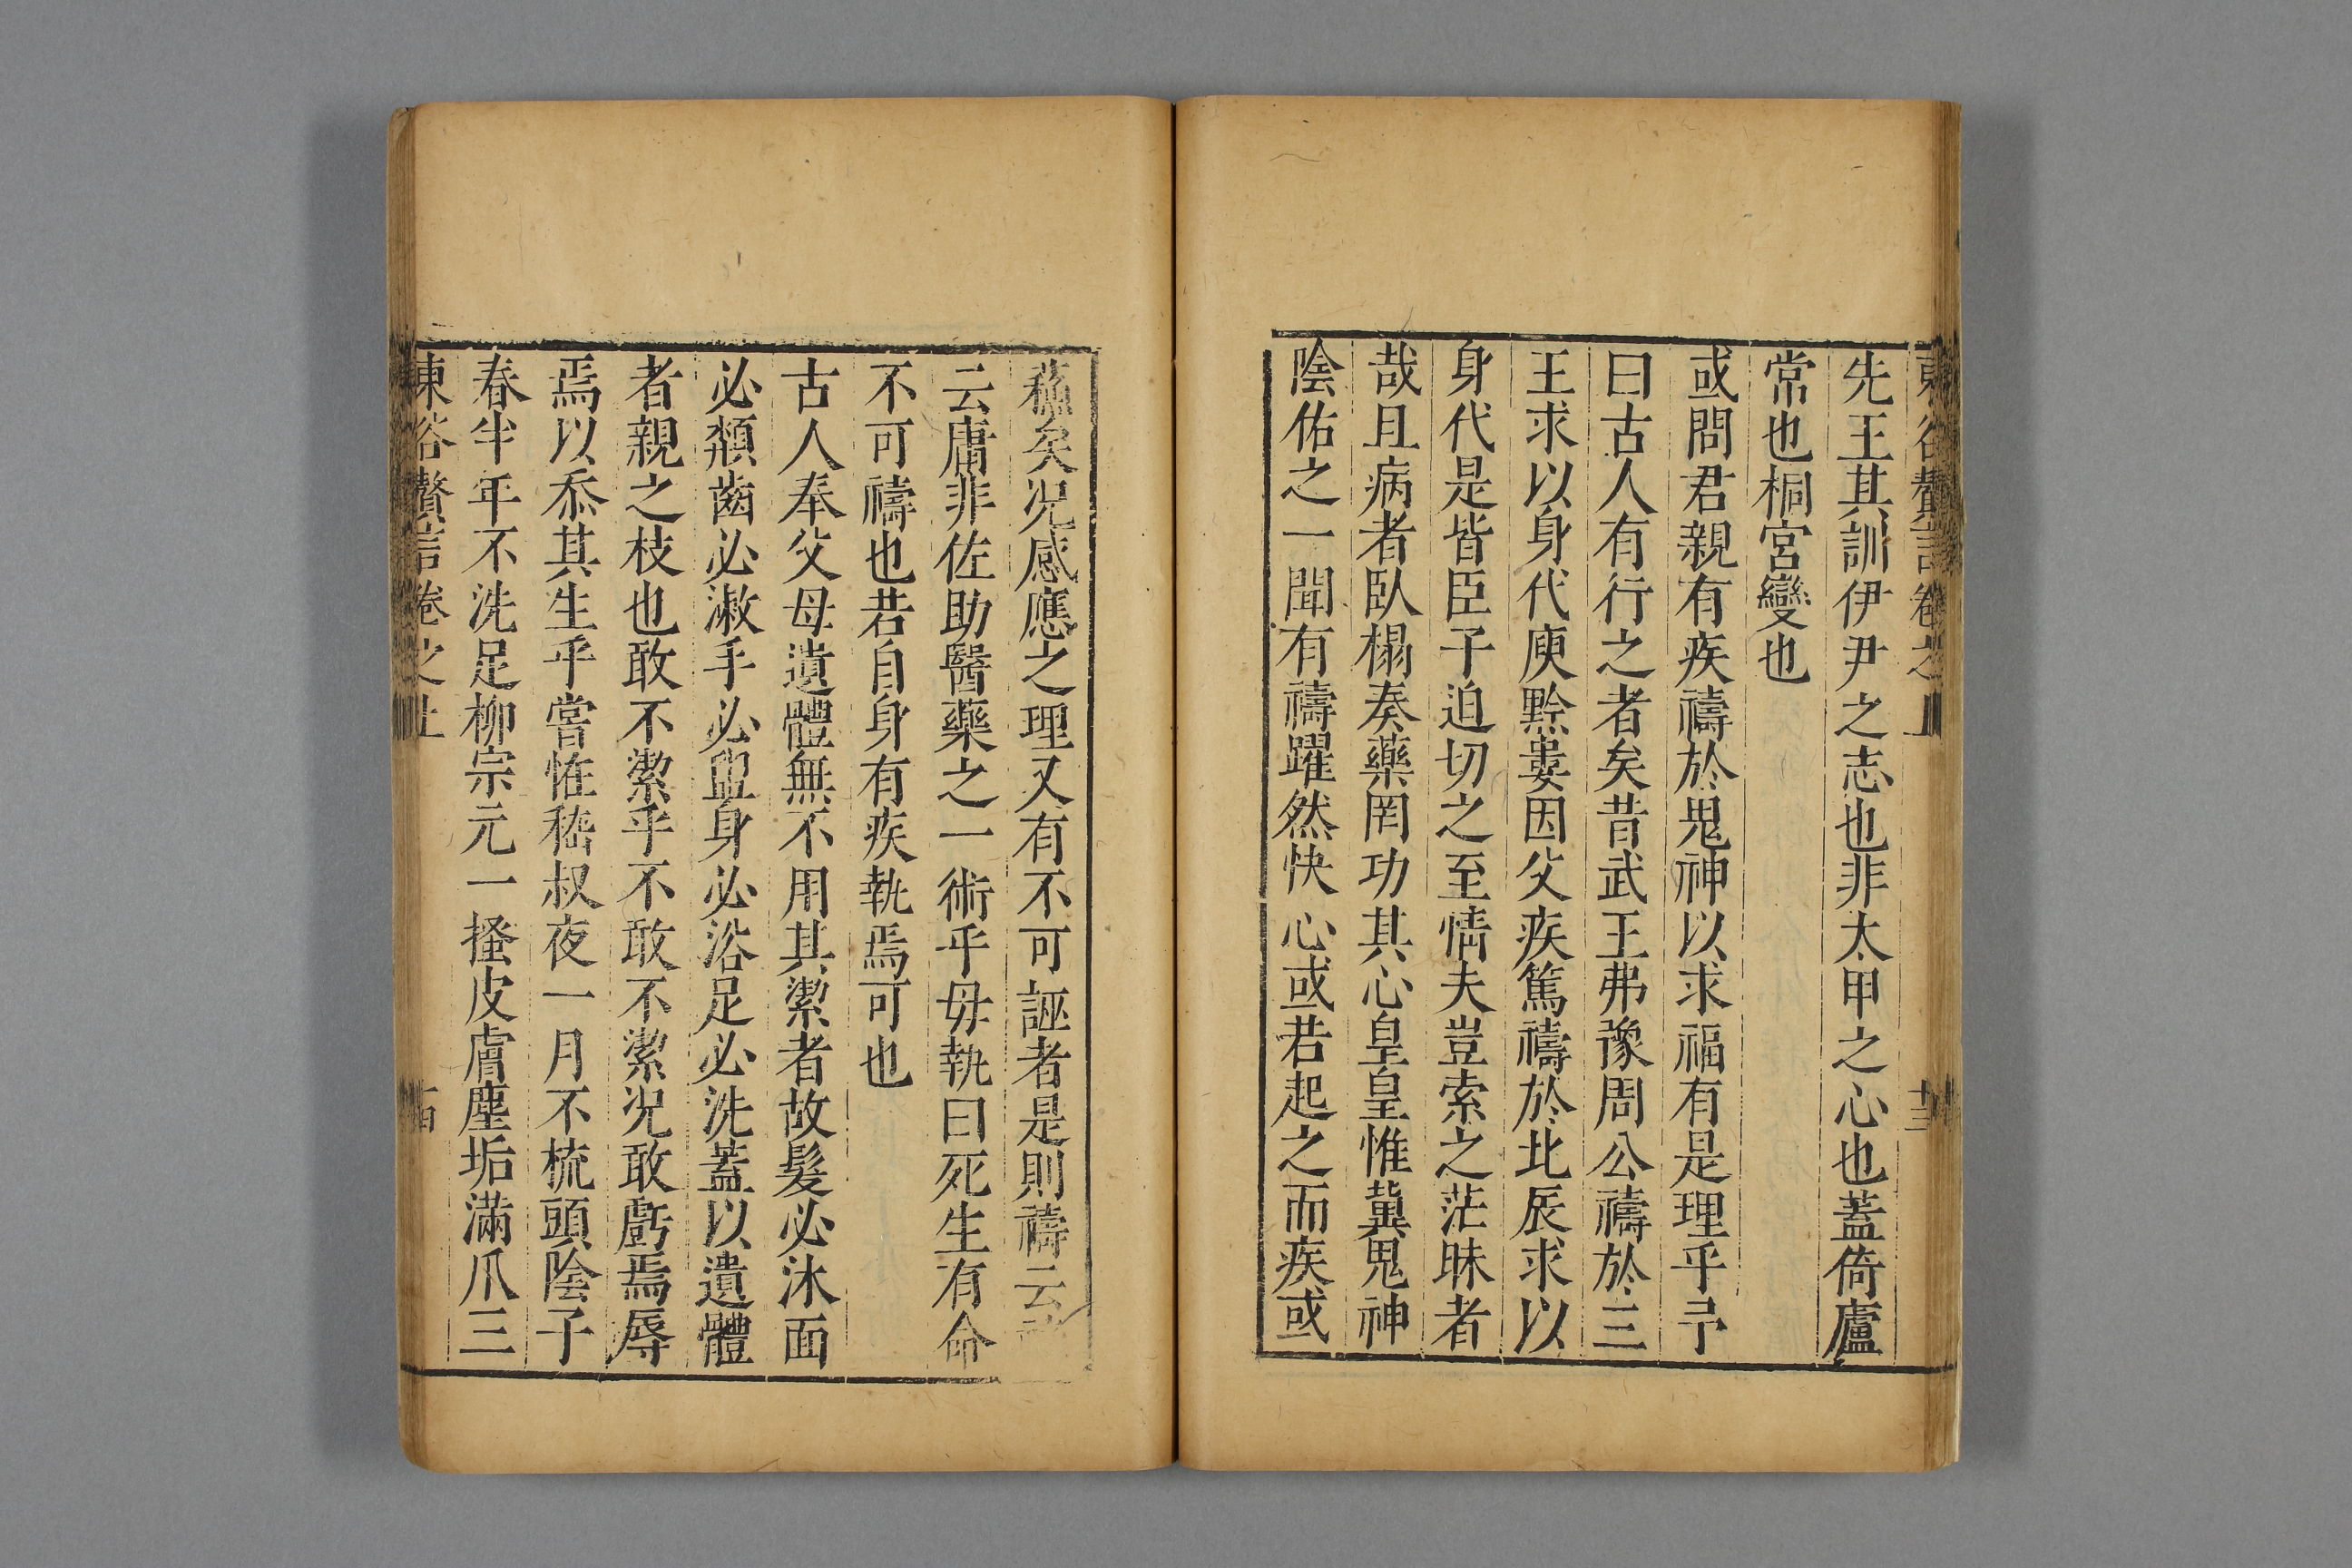 東谷贅言卷之上 十三
先王其訓伊尹之志也非太甲之心也蓋倚廬
常也桐宮變也
或問君親有疾禱於鬼神以求福有是理乎予
曰古人有行之者矣昔武王弗豫周公禱於三
王求以身代庾黔婁因父疾篤禱於北辰求以
身代是皆臣子迫切之至情夫豈索之茫昧者
哉且病者臥榻奏藥罔功其心皇皇惟冀鬼神
陰佑之一聞有禱躍然快心或若起之而疾或
蘓矣況感應之理又有不可誣者是則禱云
云庸非佐助醫藥之一術乎毋執曰死生有命
不可禱也若自身有疾執焉可也
古人奉父母遺體無不用其潔者故髮必沐面
必頮齒必漱手必盥身必浴足必洗蓋以遺體
者親之枝也敢不潔乎不敢不潔況敢虧焉辱
焉以忝其生乎嘗怪嵇叔夜一月不梳頭陰子
春半年不洗足柳宗元一搔皮膚塵垢滿爪三
東谷贅言卷之上 十四